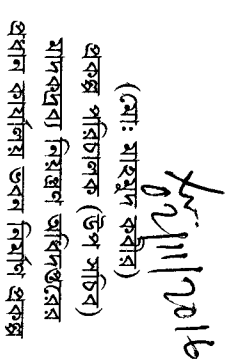 ০২/১১/২০১৬
(মোঃ মাহমুদ কবীর)
প্রকল্প পরিচালক (উপ সচিব)
মাদকদ্রব্য নিয়ন্ত্রণ অধিদপ্তরের
প্রধান কার্যালয় ভবন নির্মাণ প্রকল্প